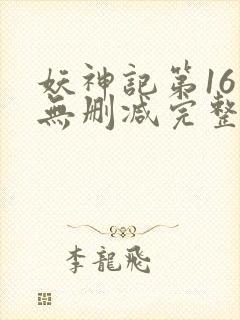 妖神記第16
無刪減完整
李龍飛